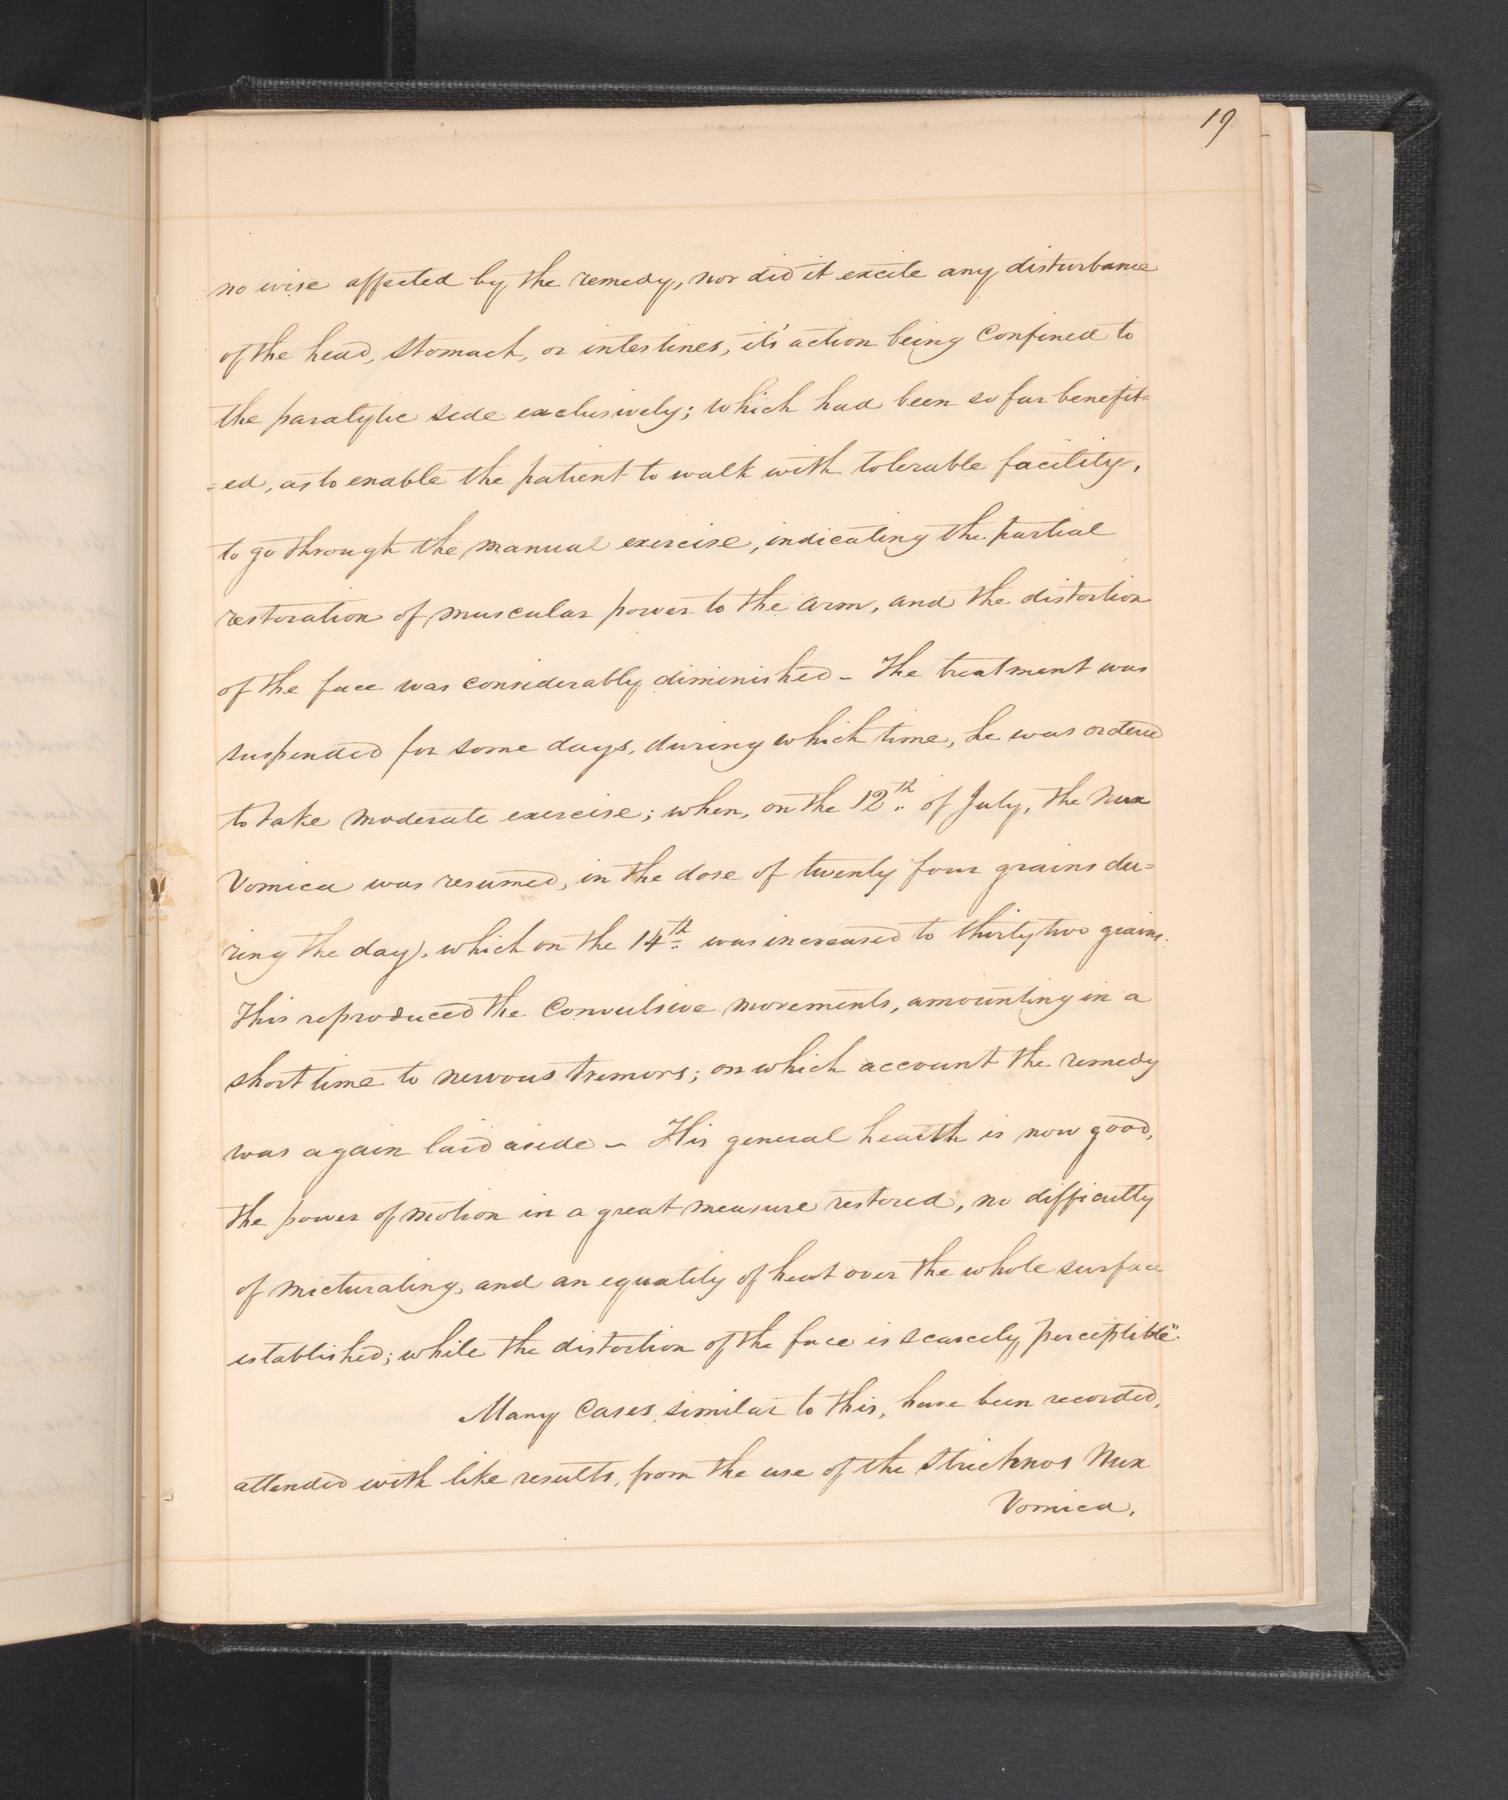 19
no wise affected by the remedy, nor did it excite any disturbance
of the head, stomach, or intestines, it's action being confined to
the paralytic side exclusively; which had been so far benefit=
=ed, as to enable the patient to walk with tolerable facility,
to go through the manual exercise, indicating the partial
restoration of muscular power to the arm, and the distortion
of the face was considerably diminished - The treatment was
suspended for some days, during which time, he was ordered
to take moderate exercise; when, on the 12th of July, the Nux
Vomica was resumed, in the dose of twenty four grains du=
ring the day, which on the 14th was increased to thirty two grains.
This reproduced the Convulsive movements, amounting in a
short time to nervous tremors; on which account the remedy
was again laid aside - His general health is now good,
the power of motion in a great measure restored, no difficulty
of micturating, and an equality of heat over the whole surface
established; while the distortion of the face is scarcely perceptible".
Many Cases, similar to this, have been recorded,
attended with like results, from the use of the Strichnos Nux
Vomica.